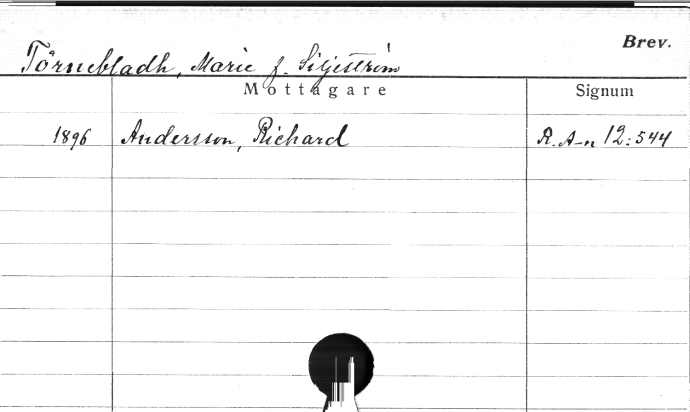 Brev.
Törnebladh, Marie f. Siljeström
Mottagare Signum
1896 Andersson, Richard R. A-n 12:544